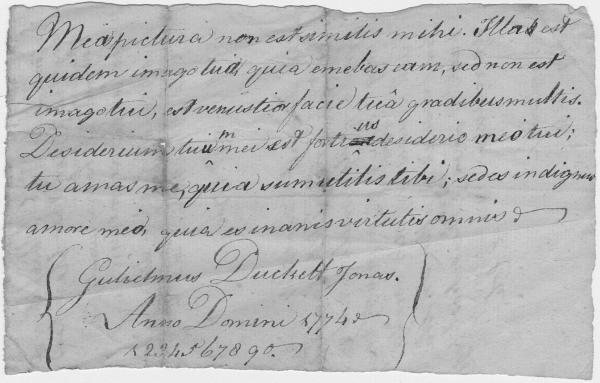 Mea pictura non est similis mihi. Illa est
quidem imago tua, quia emebas eam, sed non est
imago tui, est venustior facie tuâ gradibus multis.
Desiderium tuum mei est fortius desiderio meo tui;
tu amas me, quia sum utilis tibi; sed es indignus
amore meo, quia es inanis virtutis omnis
Gulielmus Duckett Jonas.
Anno Domini 1774
1234567890.